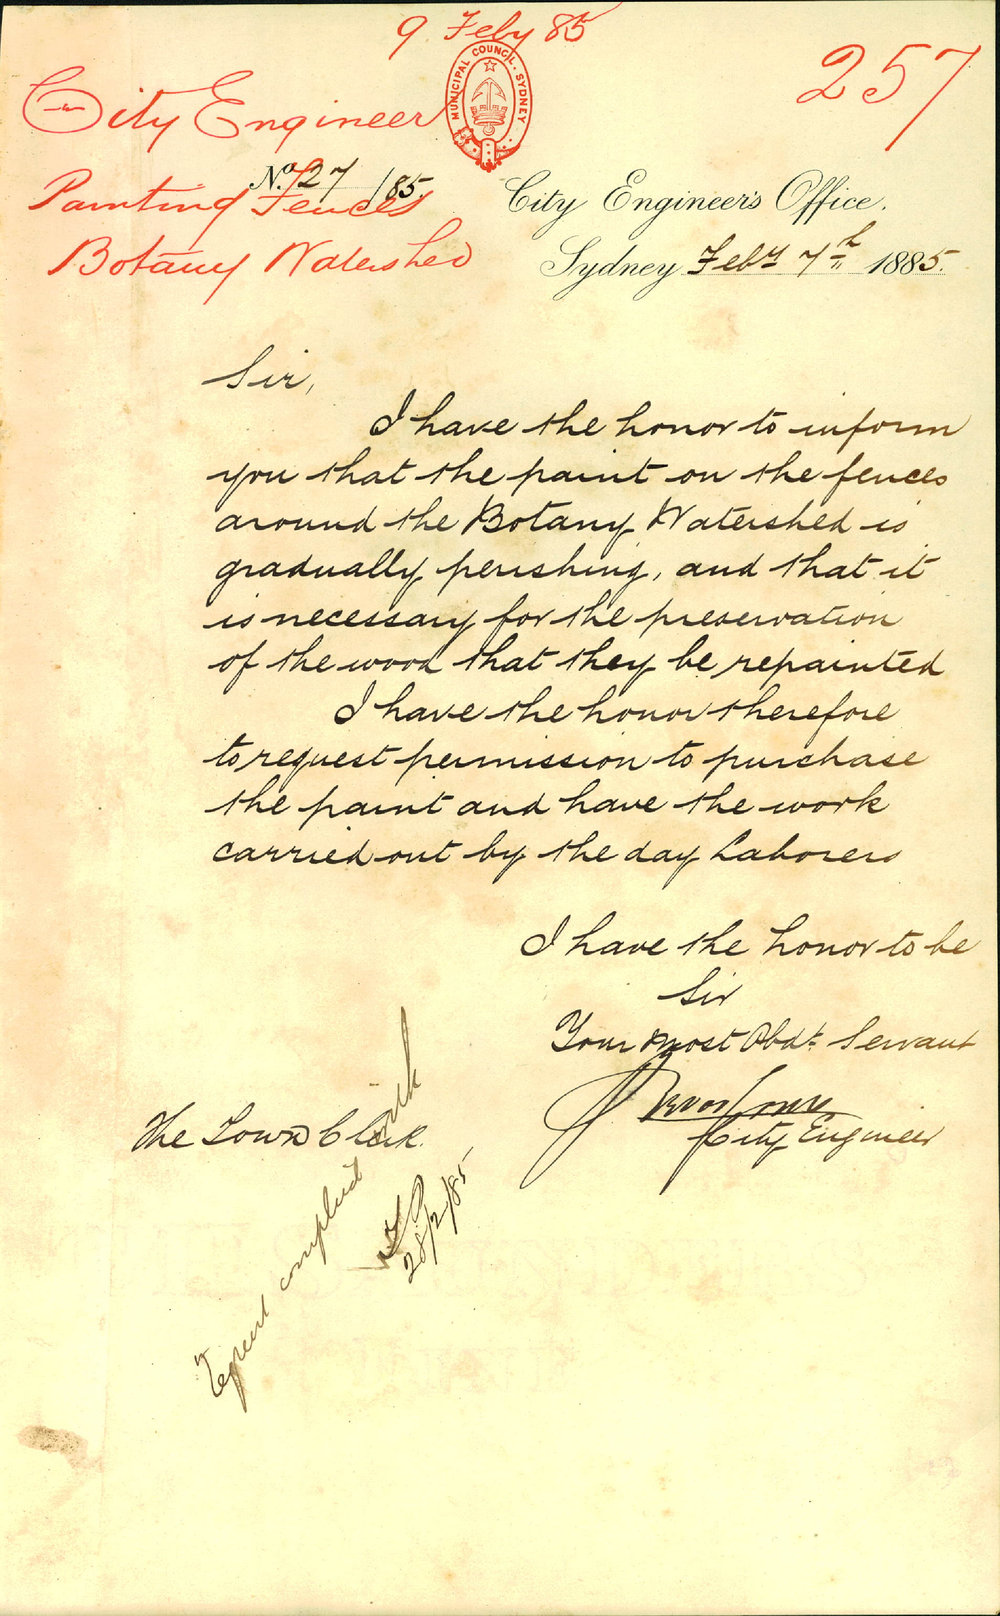 9 Feby 85
257
MUNICIPAL COUNCIL. SYDNEY
City Engineer
No. 727/85.
Painting Fences
Botany Watershed
City Engineer's Office.
Sydney Feby 7th 1885.
Sir,
I have the honor to inform
you that the paint on the fences
around the Botany Watershed is
gradually perishing, and that it
is necessary for the preservation
of the wood that they be repainted
I have the honor therefore
to request permission to purchase
the paint and have the work
carried out by the day Laborers
I have the honor to be
Sir
Your most Obdt. Servant
City Engineer
The Town Clerk
Request complied with
28/2/85